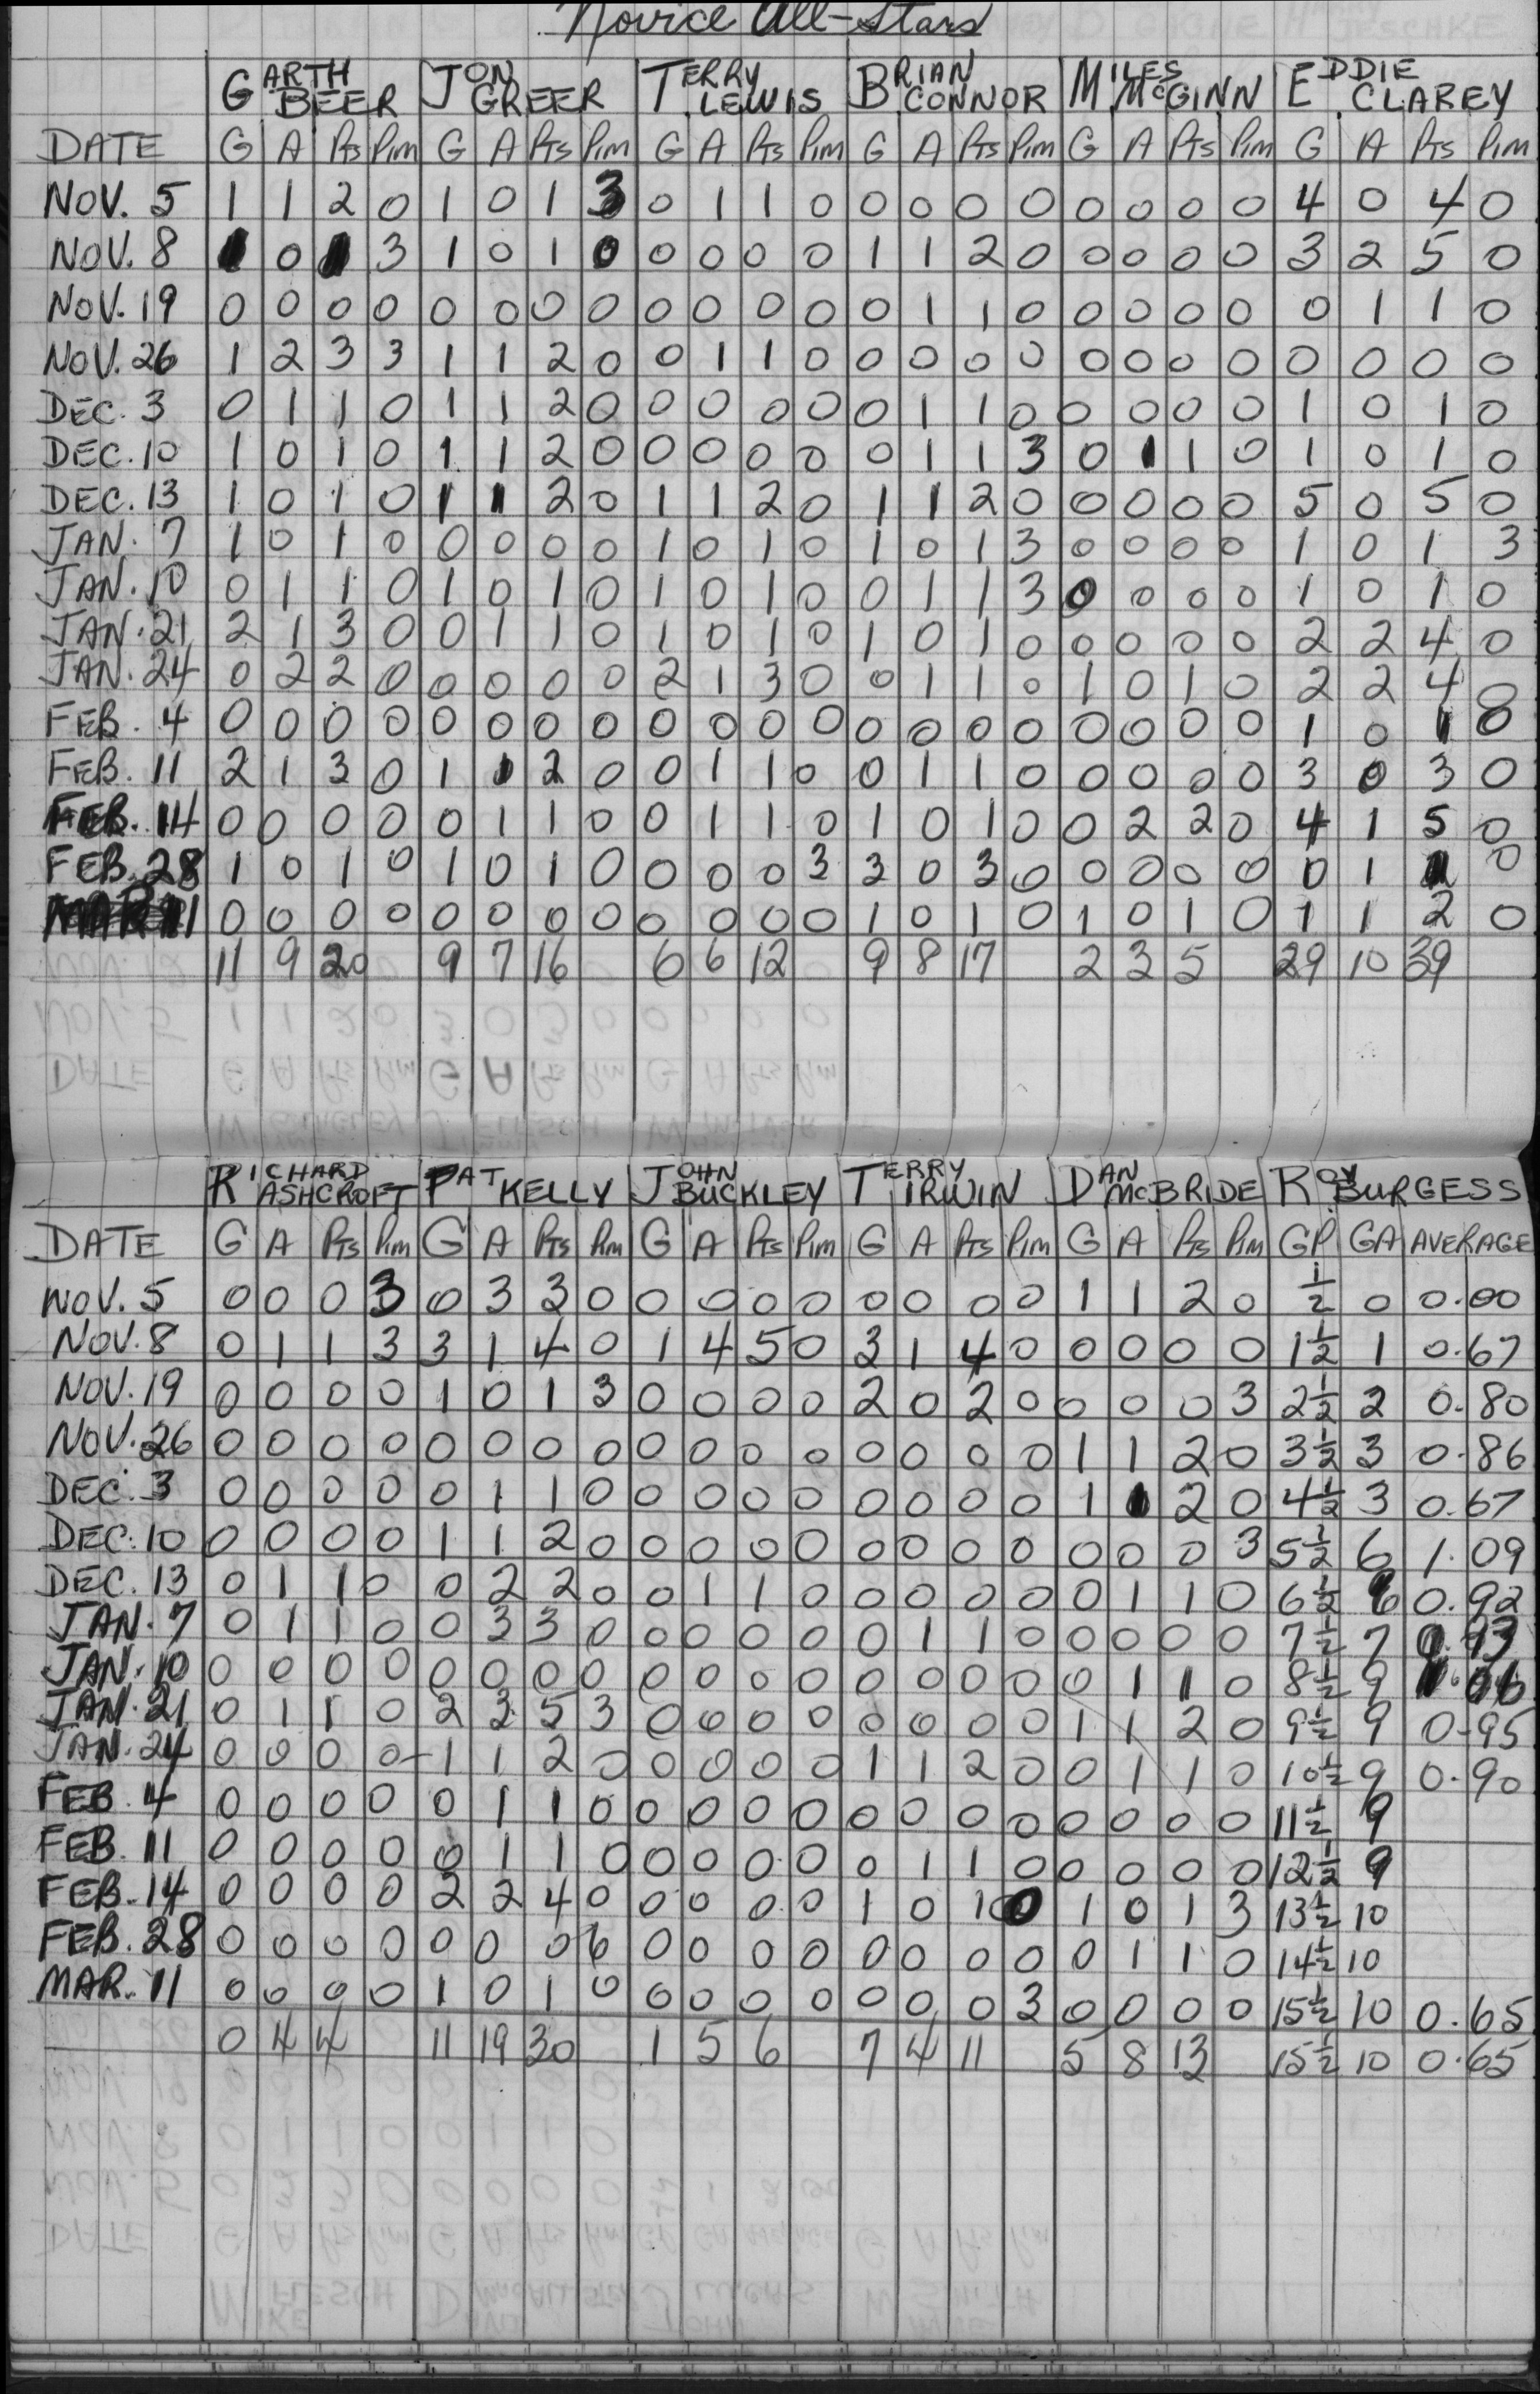 Novice All-Stars
GARTH BEER JON GREER TERRY LEWIS BRIAN CONNOR MILES McGINN EDDIE CLAREY
DATE G A Pts Pim G A Pts Pim G A Pts Pim G A Pts Pim G A Pts Pim G A Pts Pim
NOV. 5 1 1 2 0 1 0 1 3 0 1 1 0 0 0 0 0 0 0 0 0 4 0 4 0
NOV. 8 1 0 1 3 1 0 1 0 0 0 0 0 1 1 2 0 0 0 0 0 3 2 5 0
NOV. 19 0 0 0 0 0 0 0 0 0 0 0 0 0 1 1 0 0 0 0 0 0 1 1 0
NOV. 26 1 2 3 3 1 1 2 0 0 1 1 0 0 0 0 0 0 0 0 0 0 0 0 0
DEC. 3 0 1 1 0 1 1 2 0 0 0 0 0 0 1 1 0 0 0 0 0 1 0 1 0
DEC. 10 1 0 1 0 1 1 2 0 0 0 0 0 0 1 1 3 0 1 1 0 1 0 1 0
DEC. 13 1 0 1 0 1 1 2 0 1 1 2 0 1 1 2 0 0 0 0 0 5 0 5 0
JAN. 7 1 0 1 0 0 0 0 0 1 0 1 0 1 0 1 3 0 0 0 0 1 0 1 3
JAN. 10 0 1 1 0 1 0 1 0 1 0 1 0 0 1 1 3 0 0 0 0 1 0 1 0
JAN. 21 2 1 3 0 0 1 1 0 1 0 1 0 1 0 1 0 0 0 0 0 2 2 4 0
JAN. 24 0 2 2 0 0 0 0 0 2 1 3 0 0 1 1 0 1 0 1 0 2 2 4 0
FEB. 4 0 0 0 0 0 0 0 0 0 0 0 0 0 0 0 0 0 0 0 0 1 0 1 0
FEB. 11 2 1 3 0 1 1 2 0 0 1 1 0 0 1 1 0 0 0 0 0 3 0 3 0
FEB. 14 0 0 0 0 0 1 1 0 0 1 1 0 1 0 1 0 0 2 2 0 4 1 5 0
FEB. 28 1 0 1 0 1 0 1 0 0 0 0 3 3 0 3 0 0 0 0 0 0 1 1 0
MAR 11 0 0 0 0 0 0 0 0 0 0 0 0 1 0 1 0 1 0 1 0 1 1 2 0
11 9 20 9 7 16 6 6 12 9 8 17 2 3 5 29 10 39
RICHARD ASHCROFT PAT KELLY JOHN BUCKLEY TERRY IRWIN DAN McBRIDE ROY BURGESS
DATE G A Pts Pim G A Pts Pim G A Pts Pim G A Pts Pim G A Pts Pim GP GA AVERAGE
NOV. 5 0 0 0 3 0 3 3 0 0 0 0 0 0 0 0 0 1 1 2 0 ½ 0 0.00
NOV. 8 0 1 1 3 3 1 4 0 1 4 5 0 3 1 4 0 0 0 0 0 1½ 1 0.67
NOV. 19 0 0 0 0 1 0 1 3 0 0 0 0 2 0 2 0 0 0 0 3 2½ 2 0.80
NOV. 26 0 0 0 0 0 0 0 0 0 0 0 0 0 0 0 0 1 1 2 0 3½ 3 0.86
DEC. 3 0 0 0 0 0 1 1 0 0 0 0 0 0 0 0 0 1 1 2 0 4½ 3 0.67
DEC. 10 0 0 0 0 1 1 2 0 0 0 0 0 0 0 0 0 0 0 0 3 5½ 6 1.09
DEC. 13 0 1 1 0 0 2 2 0 0 1 1 0 0 0 0 0 0 1 1 0 6½ 6 0.92
JAN. 7 0 1 1 0 0 3 3 0 0 0 0 0 0 1 1 0 0 0 0 0 7½ 7 0.93
JAN. 10 0 0 0 0 0 0 0 0 0 0 0 0 0 0 0 0 0 1 1 0 8½ 9 1.06
JAN. 21 0 1 1 0 2 3 5 3 0 0 0 0 0 0 0 0 1 1 2 0 9½ 9 0.95
JAN. 24 0 0 0 0 1 1 2 0 0 0 0 0 1 1 2 0 0 1 1 0 10½ 9 0.90
FEB. 4 0 0 0 0 0 1 1 0 0 0 0 0 0 0 0 0 0 0 0 0 11½ 9
FEB. 11 0 0 0 0 0 1 1 0 0 0 0 0 0 1 1 0 0 0 0 0 12½ 9
FEB. 14 0 0 0 0 2 2 4 0 0 0 0 0 1 0 1 0 1 0 1 3 13½ 10
FEB. 28 0 0 0 0 0 0 0 6 0 0 0 0 0 0 0 0 0 1 1 0 14½ 10
MAR. 11 0 0 0 0 1 0 1 0 0 0 0 0 0 0 0 3 0 0 0 0 15½ 10 0.65
0 4 4 11 19 30 1 5 6 7 4 11 5 8 13 15½ 10 0.65